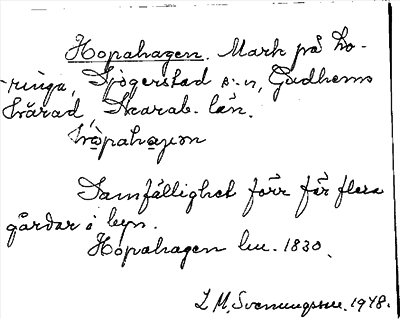 Hopahagen. Mark på Lo-
ringa, Sjögerstad s:n, Gudhems
härad, Skarab. län.
Samfällighet förr för flera
gårdar i byn.
Hopahagen lm. 1830.
L M. Svenungsson. 1948.